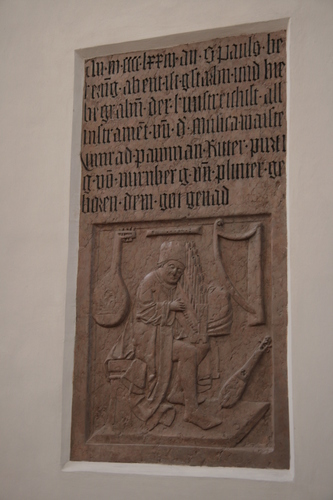 An · m · cccc · lxxiij · an · S pauls be
kerūg · abent · ist · gstarbn · und hie
begrabn · der · kunstreichist · all
instrament · vn̄ · d · Musica maiste
Cunrad · pawman · Ritter · purti
g · vō · nürnberg · vn̄ · plinter · ge
boren · dem · got · genad